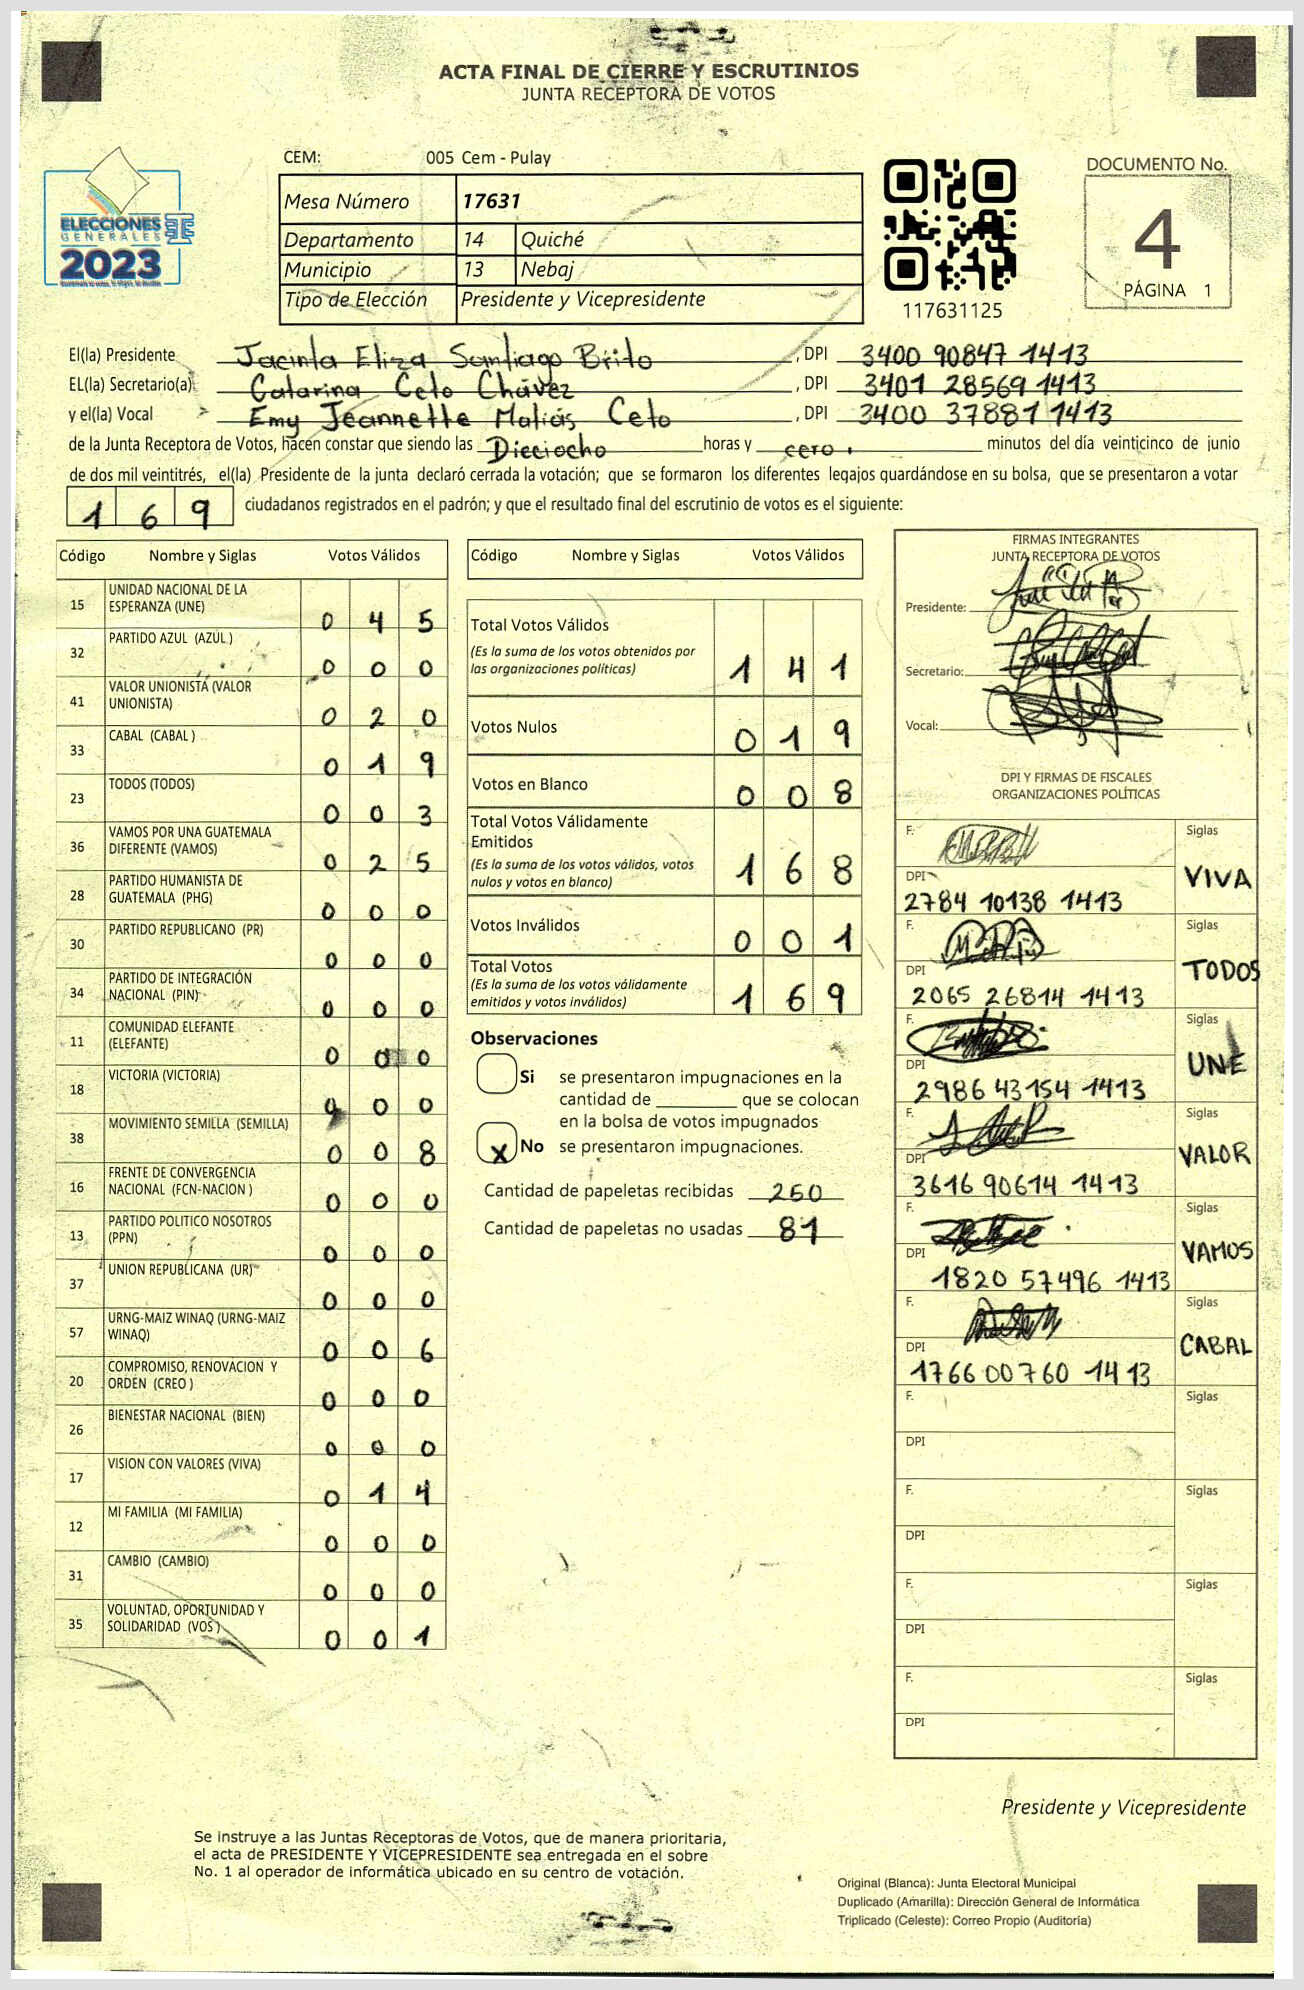 ACTA FINAL DE CIERRE Y ESCRUTINIOS
JUNTA RECEPTORA DE VOTOS
ELECCIONES
GENERALES
2023
CEM: 005 Cem - Pulay
Mesa Número 17631
Departamento 14 Quiché
Municipio 13 Nebaj
Tipo de Elección Presidente y Vicepresidente
117631125
DOCUMENTO No.
4
PÁGINA 1
El(la) Presidente Jacinta Eliza Santiago Brito , DPI 3400 90847 1413
EL(la) Secretario(a) Catarina Ceto Chávez , DPI 3401 28569 1413
y el(la) Vocal Emy Jeannette Matías Ceto , DPI 3400 37881 1413
de la Junta Receptora de Votos, hacen constar que siendo las Dieciocho horas y cero minutos del día veinticinco de junio
de dos mil veintitrés, el(la) Presidente de la junta declaró cerrada la votación; que se formaron los diferentes legajos quardándose en su bolsa, que se presentaron a votar
169 ciudadanos registrados en el padrón; y que el resultado final del escrutinio de votos es el siguiente:
Código Nombre y Siglas Votos Válidos
15 UNIDAD NACIONAL DE LA
ESPERANZA (UNE) 0 4 5
32 PARTIDO AZUL (AZUL ) 0 0 0
41 VALOR UNIONISTA (VALOR
UNIONISTA) 0 2 0
33 CABAL (CABAL ) 0 1 9
23 TODOS (TODOS) 0 0 3
36 VAMOS POR UNA GUATEMALA
DIFERENTE (VAMOS) 0 2 5
28 PARTIDO HUMANISTA DE
GUATEMALA (PHG) 0 0 0
30 PARTIDO REPUBLICANO (PR) 0 0 0
34 PARTIDO DE INTEGRACIÓN
NACIONAL (PIN) 0 0 0
11 COMUNIDAD ELEFANTE
(ELEFANTE) 0 0 0
18 VICTORIA (VICTORIA) 0 0 0
38 MOVIMIENTO SEMILLA (SEMILLA) 0 0 8
16 FRENTE DE CONVERGENCIA
NACIONAL (FCN-NACION ) 0 0 0
13 PARTIDO POLITICO NOSOTROS
(PPN) 0 0 0
37 UNION REPUBLICANA (UR) 0 0 0
57 URNG-MAIZ WINAQ (URNG-MAIZ
WINAQ) 0 0 6
20 COMPROMISO, RENOVACION Y
ORDEN (CREO ) 0 0 0
26 BIENESTAR NACIONAL (BIEN) 0 0 0
17 VISION CON VALORES (VIVA) 0 1 4
12 MI FAMILIA (MI FAMILIA) 0 0 0
31 CAMBIO (CAMBIO) 0 0 0
35 VOLUNTAD, OPORTUNIDAD Y
SOLIDARIDAD (VOS ) 0 0 1
Código Nombre y Siglas Votos Válidos
Total Votos Válidos
(Es la suma de los votos obtenidos por
las organizaciones políticas) 1 4 1
Votos Nulos 0 1 9
Votos en Blanco 0 0 8
Total Votos Válidamente
Emitidos
(Es la suma de los votos válidos, votos
nulos y votos en blanco) 1 6 8
Votos Inválidos 0 0 1
Total Votos
(Es la suma de los votos válidamente
emitidos y votos inválidos) 1 6 9
Observaciones
Si se presentaron impugnaciones en la
cantidad de ________ que se colocan
en la bolsa de votos impugnados
x No se presentaron impugnaciones.
Cantidad de papeletas recibidas 250
Cantidad de papeletas no usadas 81
FIRMAS INTEGRANTES
JUNTA RECEPTORA DE VOTOS
Presidente:
Secretario:
Vocal:
DPI Y FIRMAS DE FISCALES
ORGANIZACIONES POLÍTICAS
F. Siglas
DPI VIVA
2784 10138 1413
F. Siglas
DPI TODOS
2065 26814 1413
F. Siglas
DPI UNE
2986 43154 1413
F. Siglas
DPI VALOR
3616 90614 1413
F. Siglas
DPI VAMOS
1820 57496 1413
F. Siglas
DPI CABAL
1766 00760 1413
F. Siglas
DPI
F. Siglas
DPI
F. Siglas
DPI
F. Siglas
DPI
Presidente y Vicepresidente
Se instruye a las Juntas Receptoras de Votos, que de manera prioritaria,
el acta de PRESIDENTE Y VICEPRESIDENTE sea entregada en el sobre
No. 1 al operador de informática ubicado en su centro de votación.
Original (Blanca): Junta Electoral Municipal
Duplicado (Amarilla): Dirección General de Informática
Triplicado (Celeste): Correo Propio (Auditoría)